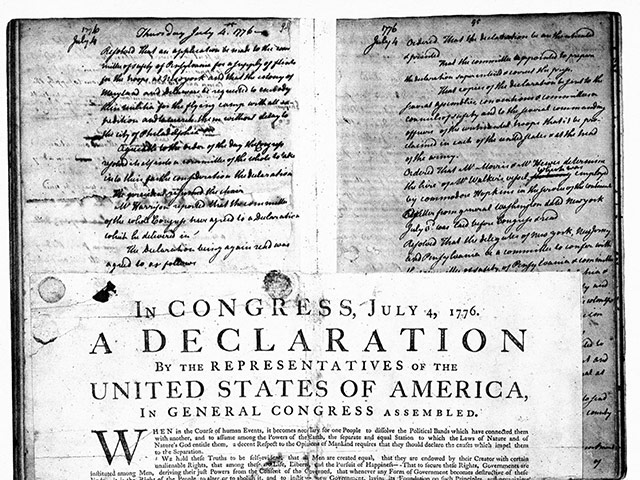 1776
July 4
Thursday July 4th 1776
Resolved that an application be made to the com
mittee of safety of Pensylvania for a supply of flints
for the troops at New york and that the colony of
Maryland and Delaware be requested to embody
their militia for the flying camp with all ex
pedition and to march them without delay to
the city of Philadelphia
Agreeable to the order of the day the Congress
resolved itself into a committee of the whole to take
into their farther consideration the declaration
The president resumed the chair
Mr Harrison reported that the committee
of the whole Congress have agreed to a Declaration
which he delivered in
The Declaration being again read was
agreed to as follows
1776
July 4
Ordered That the declaration be authenticated
& printed
That the committee appointed to prepare
the declaration superintend & correct the press.
That copies of the declaration be sent to the
several assemblies, conventions & committees or
councils of safety and to the several commanding
officers of the continental troops that it be pro
claimed in each of the united states & at the head
of the army.
Ordered That Mr Morris & Mr Hewes determine
the hire of Mr Walker's vessel employed
by commodore Hopkins in the service of the continent
A letter from general Washington dated New york
July was laid before Congress & read
Resolved That the delegates of New york, New Jersey
and Pensylvania be a committee to confer with
committee of safety of Pensylvania
IN CONGRESS, JULY 4, 1776.
A DECLARATION
BY THE REPRESENTATIVES OF THE
UNITED STATES OF AMERICA,
IN GENERAL CONGRESS ASSEMBLED.
WHEN in the Course of human Events, it becomes necessary for one People to dissolve the Political Bands which have connected them
with another, and to assume among the Powers of the Earth, the separate and equal Station to which the Laws of Nature and of
Nature's God entitle them, a decent Respect to the Opinions of Mankind requires that they should declare the causes which impel them
to the Separation.
We hold these Truths to be self-evident, that all Men are created equal, that they are endowed by their Creator with certain
unalienable Rights, that among these are Life, Liberty, and the Pursuit of Happiness--That to secure these Rights, Governments are
instituted among Men, deriving their just Powers from the Consent of the Governed, that whenever any Form of Government becomes destructive of these
Ends, it is the Right of the People to alter or to abolish it, and to institute new Government, laying its Foundation on such Principles